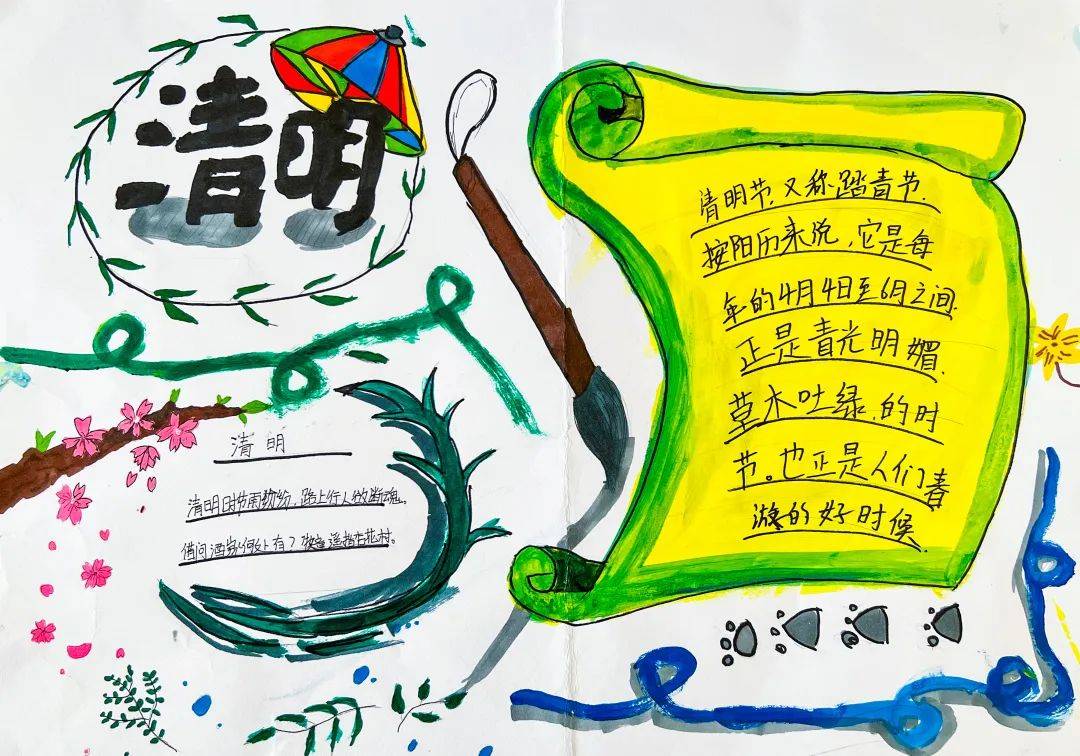 清明
清明
清明时节雨纷纷，路上行人欲断魂。
借问酒家何处有？牧童遥指杏花村。
清明节，又称踏青节，
按阳历来说，它是每
年的4月4日至6月之间，
正是青光明媚，
草木吐绿，的时
节。也正是人们春
游的好时候。